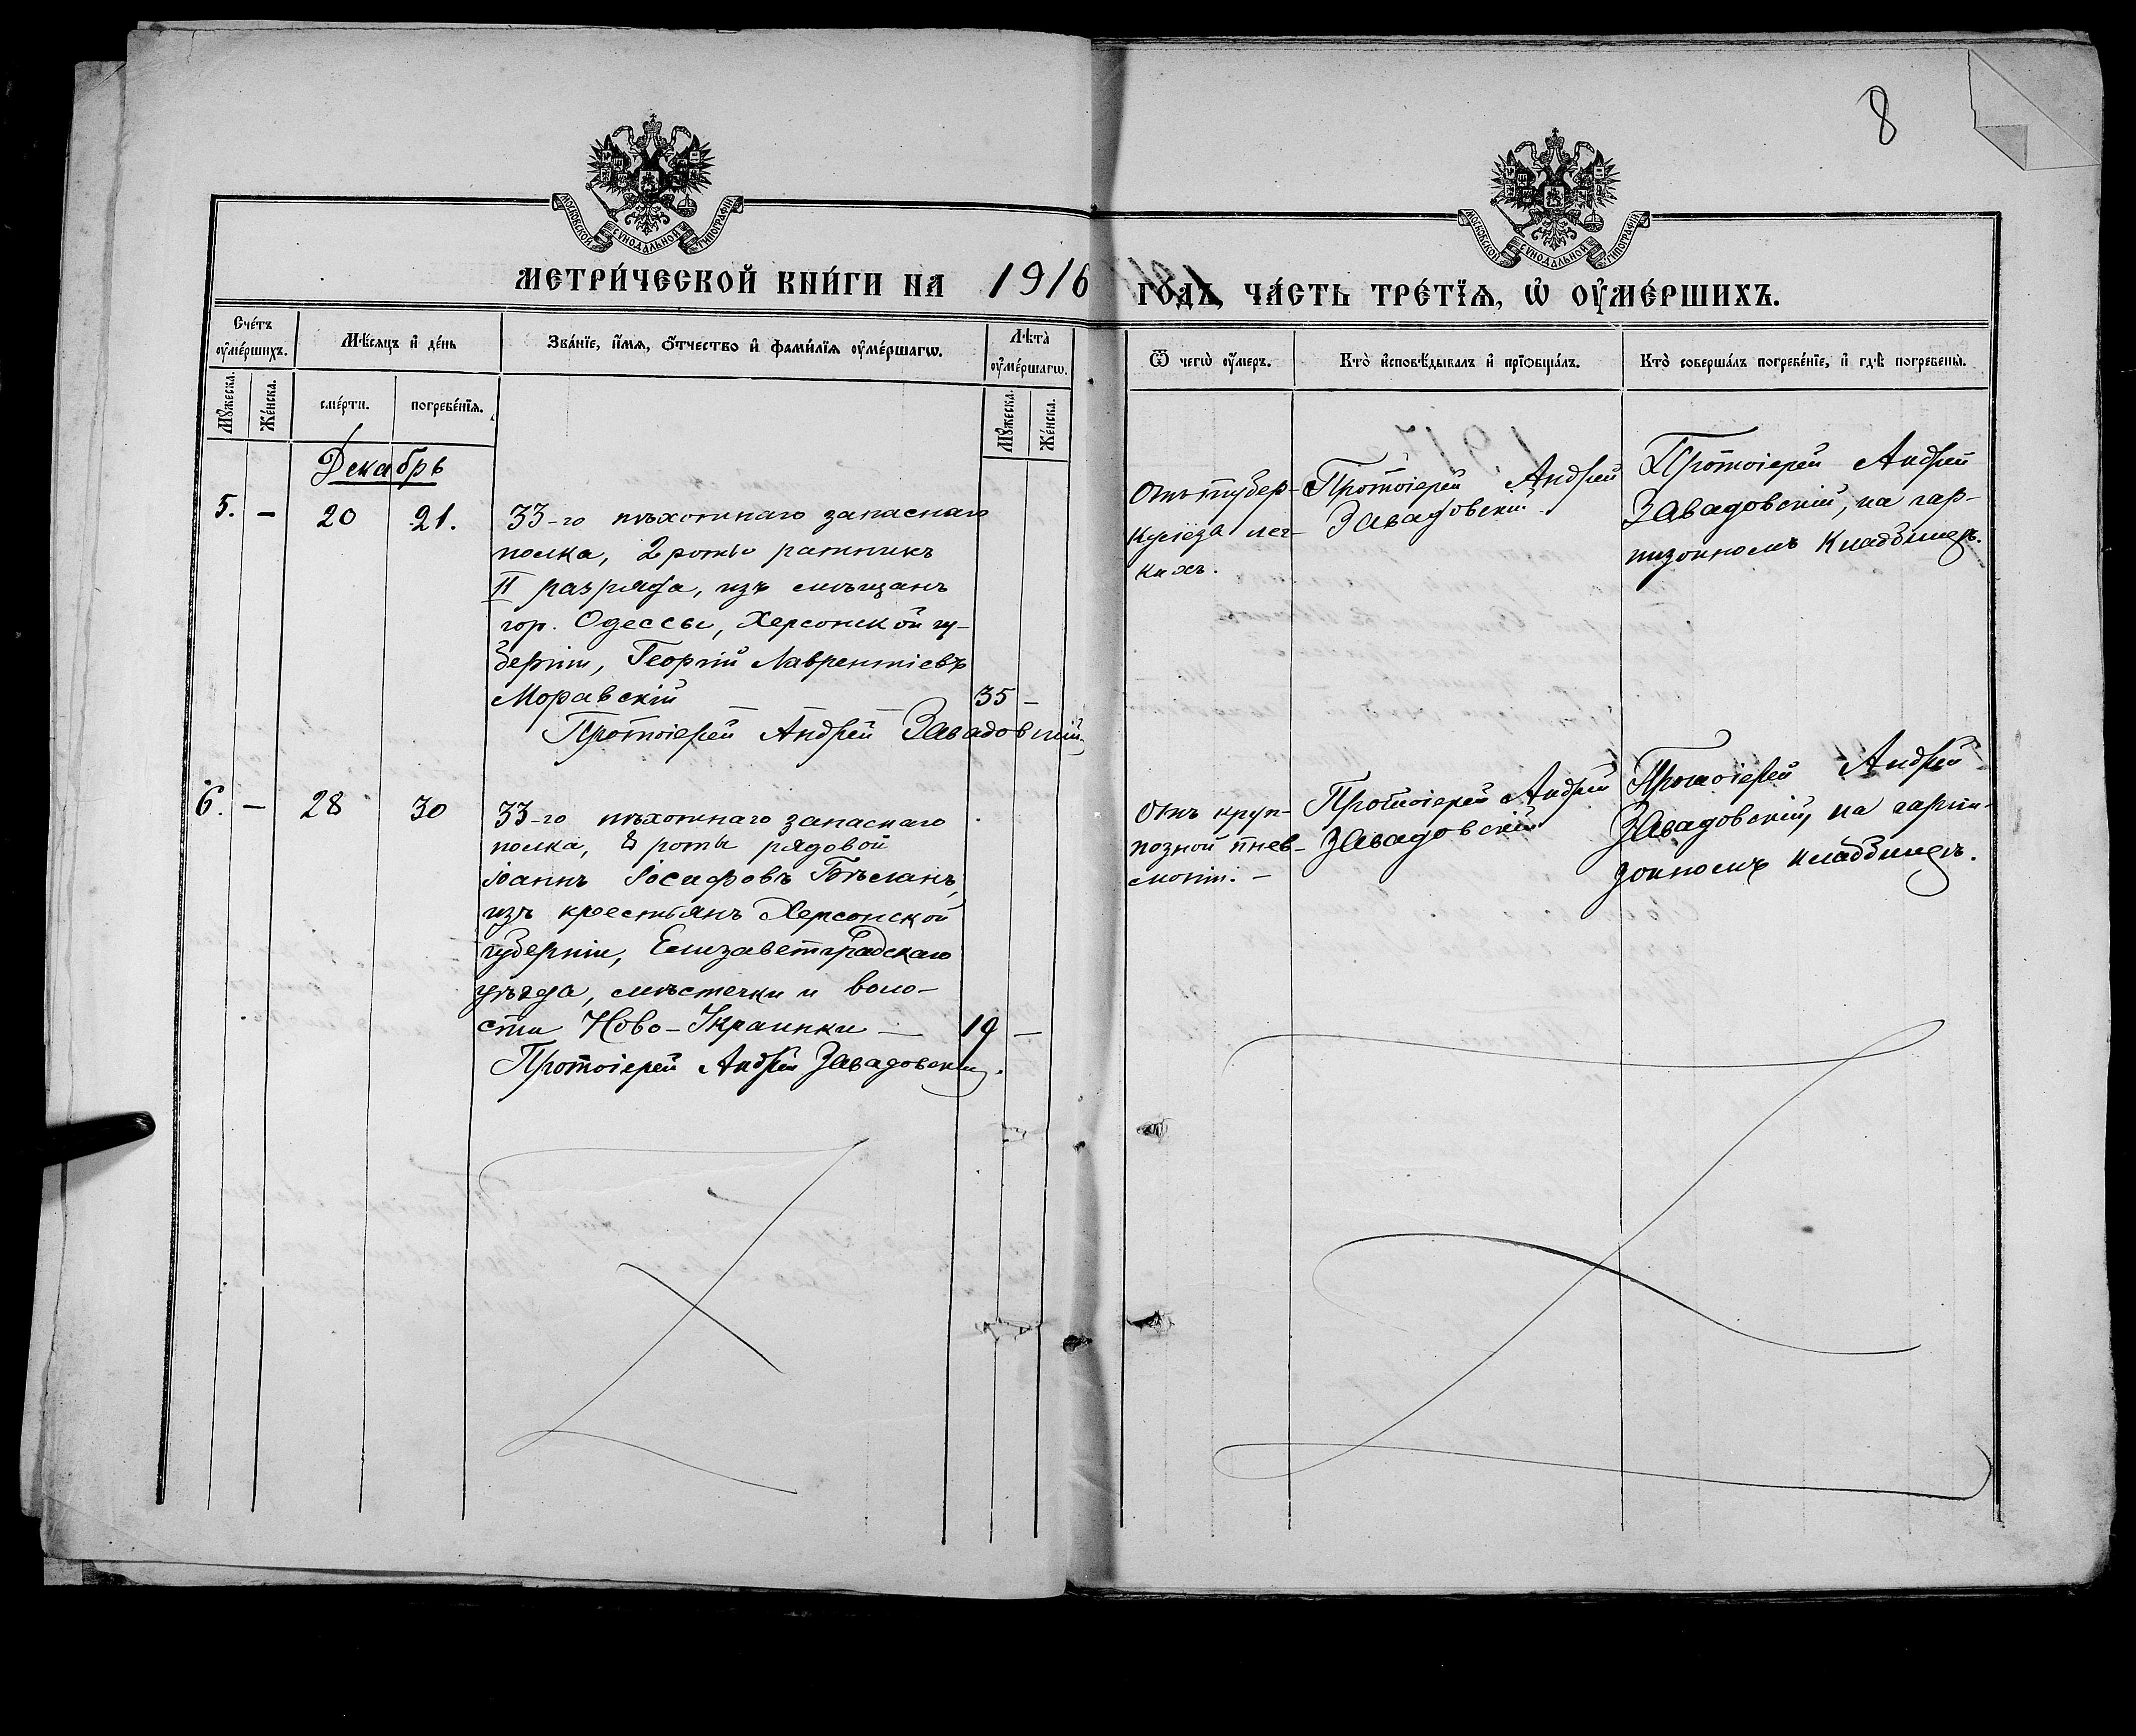 8
МОСКОВСКОЙ СѴНОДАЛЬНОЙ ТИПОГРАФІИ
МОСКОВСКОЙ СѴНОДАЛЬНОЙ ТИПОГРАФІИ
МЕТРИ́ЧЕСКОЙ КНИ́ГИ НА 1916 ГО́ДЪ, ЧА́СТЬ ТРЕ́ТЇѦ, Ѡ҆ ОУ҆МЕ́РШИХЪ.
Сче́тъ оу҆ме́ршихъ.
Мѣ́сяцъ и҆ де́нь
Зва́нїе, и҆́мѧ, ѻ҆́тчество и҆ фами́лїѧ оу҆ме́ршагѡ.
Лѣ́та̀ оу҆ме́ршагѡ.
Ѿ чегѡ̀ оу҆́меръ.
Кто̀ и҆сповѣ́дывалъ и҆ прїѡбща́лъ.
Кто̀ соверша́лъ погребе́нїе, и҆ гдѣ̀ погребены̀.
Мꙋ́жеска.
Же́нска.
сме́рти.
погребе́нїѧ.
Мꙋ́жеска.
Же́нска.
Декабрь
5. — 20 21.
33-го пѣхотнаго запаснаго
полка, 2 роты ратникъ
II разряда, изъ мѣщанъ
гор. Одессы, Херсонской гу-
берніи, Георгій Лаврентіевъ
Моравскій — — — 35 —
Протоіерей Андрей Завадовскій.
Отъ тубер-
кулеза лег-
кихъ.
Протоіерей Андрей
Завадовскій.
Протоіерей Андрей
Завадовскій, на гар-
низонномъ кладбищѣ.
6. — 28 30
33-го пѣхотнаго запаснаго
полка, 8 роты рядовой
Іоаннъ Іосифовъ Бѣланъ,
изъ крестьянъ Херсонской
губерніи, Елизаветградскаго
уѣзда, мѣстечки и воло-
сти Ново-Украинки — 19 —
Протоіерей Андрей Завадовскій.
Отъ круп-
позной пнев-
моніи. —
Протоіерей Андрей
Завадовскій
Протоіерей Андрей
Завадовскій, на гарни-
зонномъ кладбищѣ.